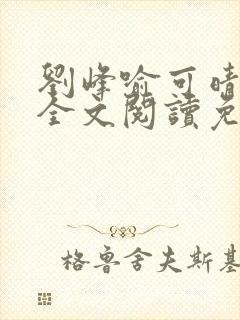 劉峰喻可晴
全文閱讀免
格魯舍夫斯基